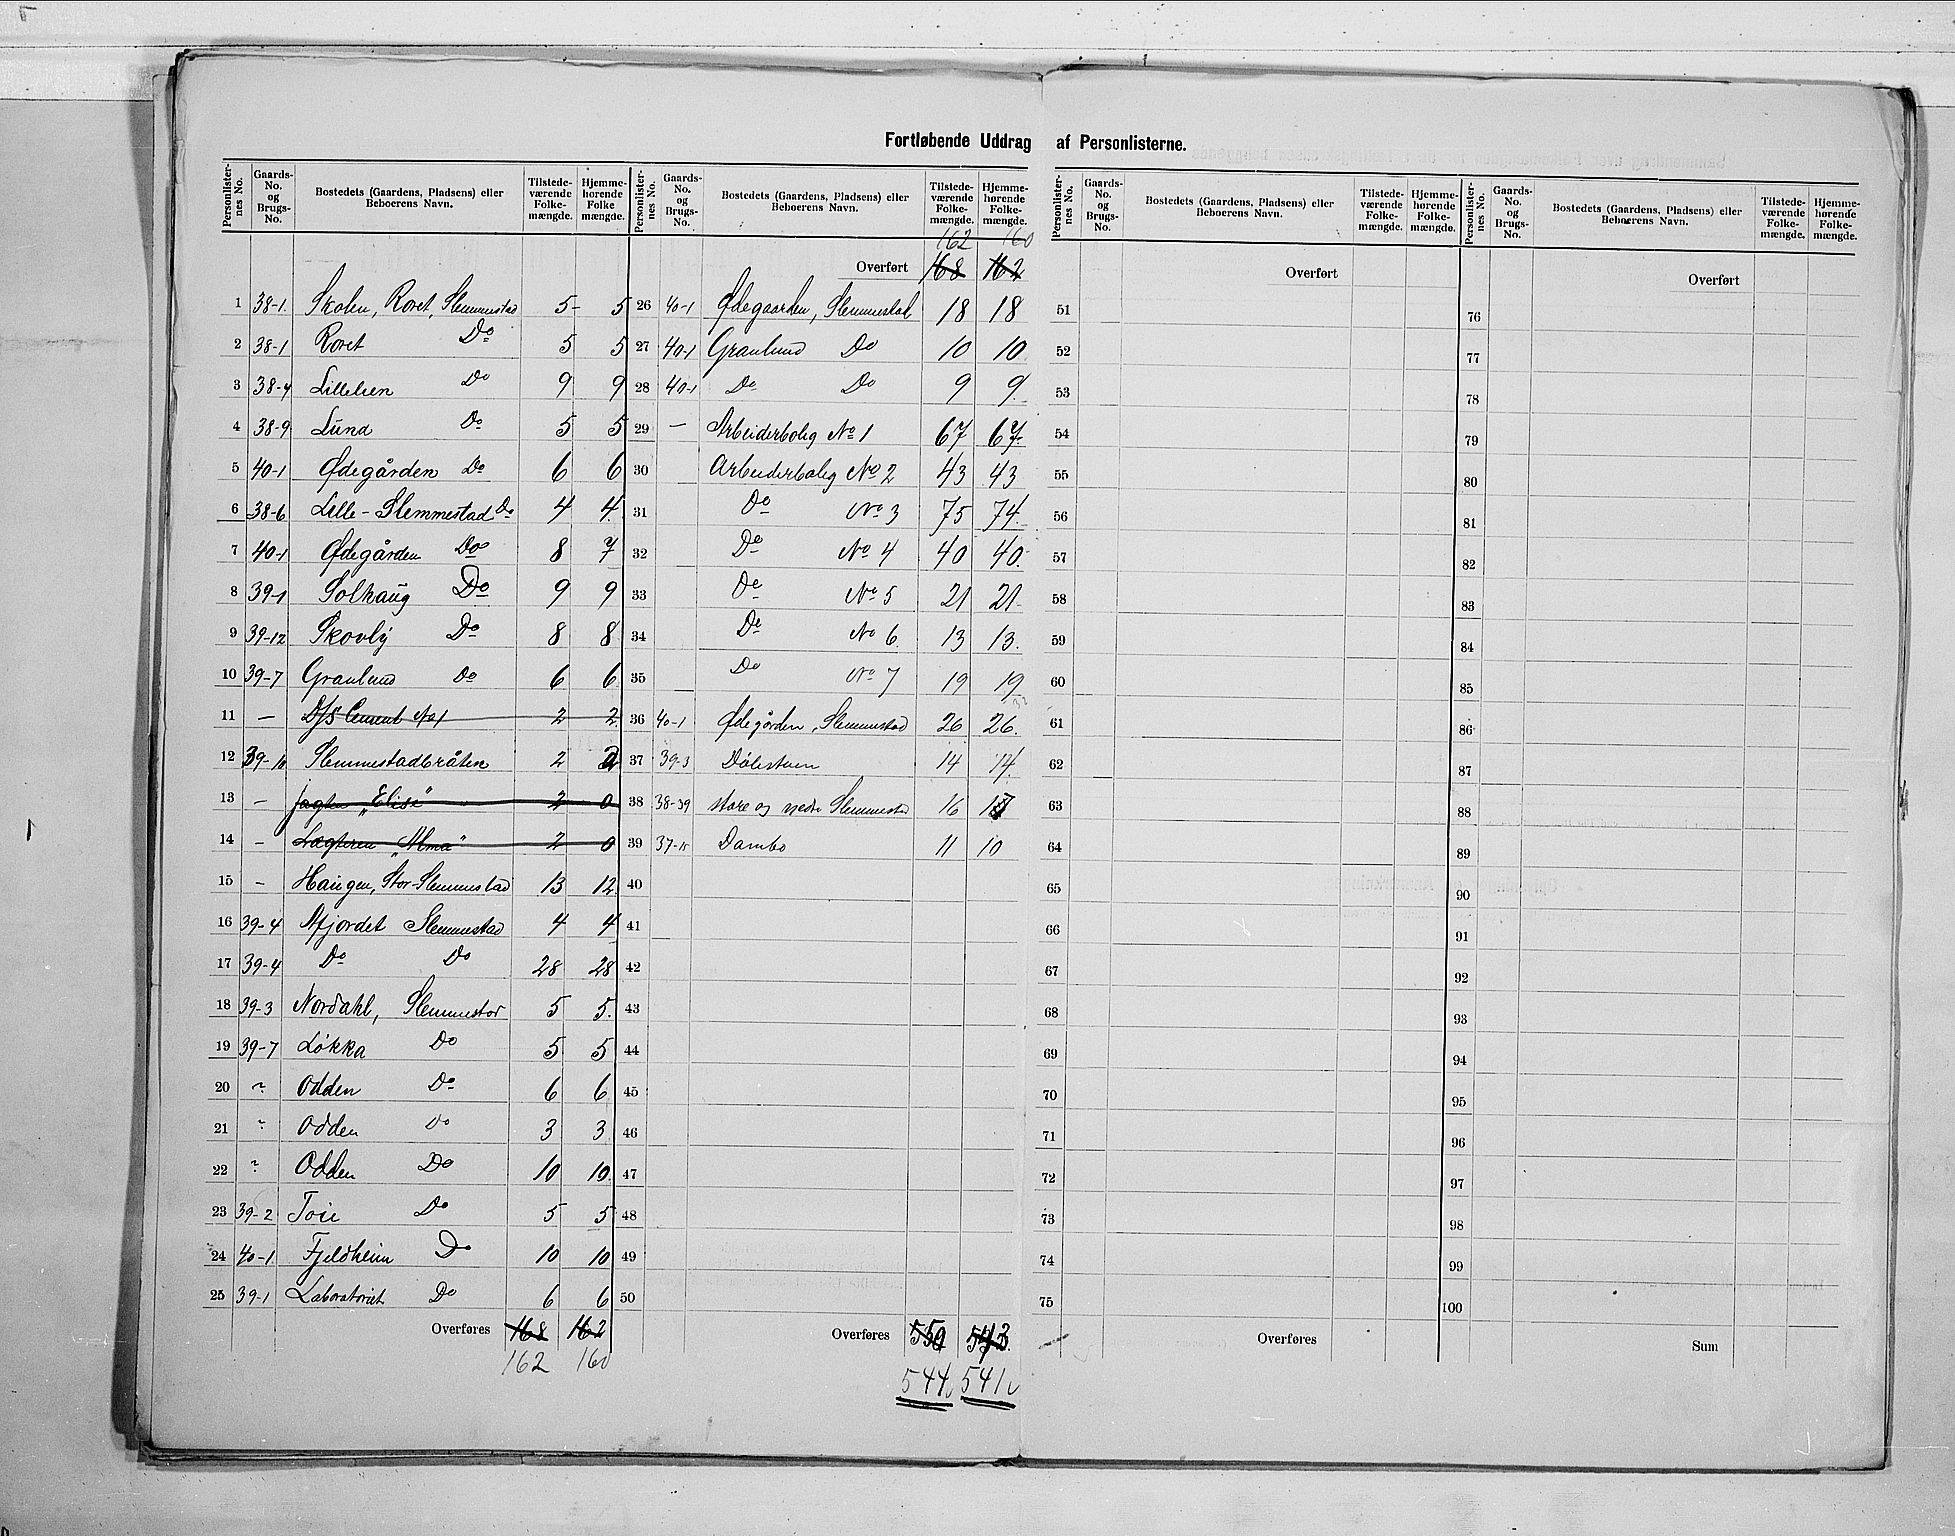 Fortløbende Uddrag af Personlisterne.
Personlisternes No. | Gaards-No. og Brugs-No. | Bostedets (Gaardens, Pladsens) eller Beboerens Navn. | Tilstedeværende Folkemængde. | Hjemmehørende Folkemængde.
1 38-1. Skolen, Roret, Slemmestad 5 5
2 38-1 Roret Do 5 5
3 38-4 Lillelien Do 9 9
4 38-9 Lund Do 5 5
5 40-1 Ødegården Do 6 6
6 38-6 Lille-Slemmestad Do 4 4.
7 40-1 Ødegården Do 8 7
8 39-1 Solhaug Do 9 9
9 39-12 Skovly Do 8 8
10 39-7 Granlund Do 6 6
11 — D/S Cement No 1 2 2
12 39-10 Slemmestadbråten 2 2
13 — Jagten "Elise" 2 0
14 — Lægteren "Alma" 2 0
15 — Haugen, Stor-Slemmestad 13 12
16 39-4 Afjordet Slemmestad 4 4
17 39-4 Do Do 28 28
18 39-3 Nordahl, Slemmestad 5 5.
19 39-7 Løkka Do 5 5
20 ? Odden Do 6 6
21 ? Odden Do 3 3
22 ? Odden Do 10 10.
23 39-2 Toie Do 5 5
24 40-1 Fjeldheim Do 10 10
25 39-1 Laboratoriet Do 6 6
Overføres 168 162
162 160
Personlisternes No. | Gaards-No. og Brugs-No. | Bostedets (Gaardens, Pladsens) eller Beboerens Navn. | Tilstedeværende Folkemængde. | Hjemmehørende Folkemængde.
162 160
Overført 168 162
26 40-1 Ødegaarden, Slemmestad 18 18
27 40-1 Granlund Do 10 10
28 40-1 Do Do 9 9.
29 — Arbeiderbolig No 1 67 67.
30 Arbeiderbolig No 2 43 43
31 Do No 3 75 74.
32 Do No 4 40 40.
33 Do No 5 21 21
34 Do No 6 13 13.
35 Do No 7 19 19
36 40-1 Ødegården, Slemmestad 26 26.
37 39-3 Dølestuen 14 14.
38 38-39 store og nedre Slemmestad 16 17
39 37-15 Dambo 11 10
40
41
42
43
44
45
46
47
48
49
50
Overføres 550 543.
544 541
Personlisternes No. | Gaards-No. og Brugs-No. | Bostedets (Gaardens, Pladsens) eller Beboerens Navn. | Tilstedeværende Folkemængde. | Hjemmehørende Folkemængde.
Overført
51
52
53
54
55
56
57
58
59
60
61
62
63
64
65
66
67
68
69
70
71
72
73
74
75
Overføres
Personlisternes No. | Gaards-No. og Brugs-No. | Bostedets (Gaardens, Pladsens) eller Beboerens Navn. | Tilstedeværende Folkemængde. | Hjemmehørende Folkemængde.
Overført
76
77
78
79
80
81
82
83
84
85
86
87
88
89
90
91
92
93
94
95
96
97
98
99
100
Sum